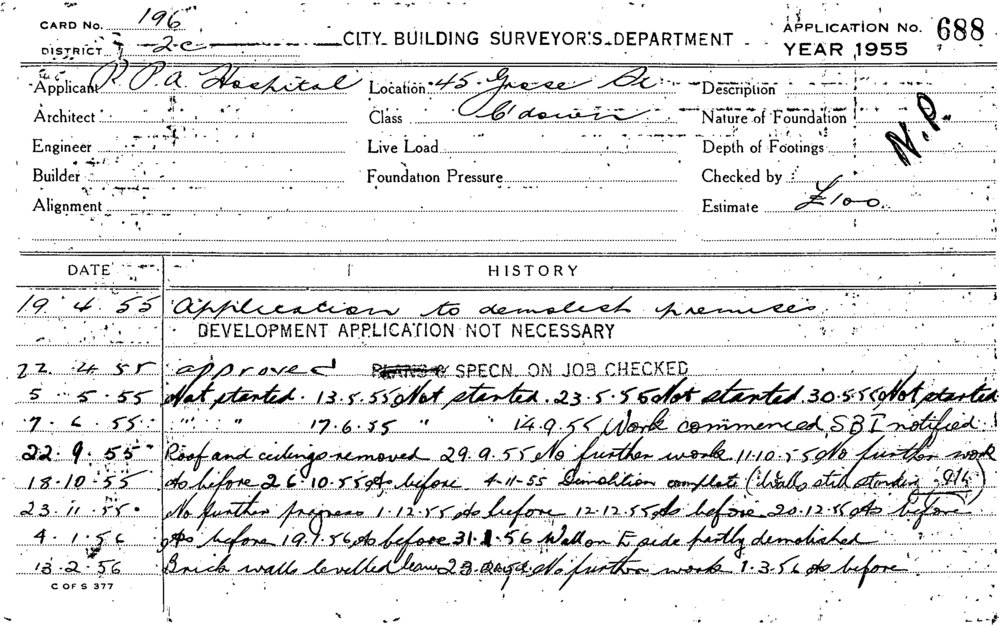 CARD No. 196
DISTRICT 2c
CITY BUILDING SURVEYOR'S DEPARTMENT
APPLICATION No. 688
YEAR 1955
Applicant R P A Hospital Location 45 Grose St Description
Architect Class C'down Nature of Foundation
N.P.
Engineer Live Load Depth of Footings
Builder Foundation Pressure Checked by
Alignment Estimate £100
DATE HISTORY
19 4 55 Application to demolish premises
DEVELOPMENT APPLICATION NOT NECESSARY
22 4 55 approved PLANS & SPECN. ON JOB CHECKED
5 5 55 Not started. 13.5.55 Not started. 23.5.55 Not started 30.5.55 Not started
7 6 55 " " 17.6.55 " " 14.9.55 Work commenced, SBI notified.
22.9.55 Roof and ceilings removed 29.9.55 No further work 11.10.55 No further work
18.10.55 As before 26.10.55 As before. 4-11-55 Demolition complete (Walls still standing)
23.11.55 No further progress 1.12.55 As before 12.12.55 As before 20.12.55 As before
4.1.56 As before 19.1.56 As before 31.1.56 Wall on E side partly demolished
13.2.56 Brick walls levelled No further work 1.3.56 As before
C OF S 377